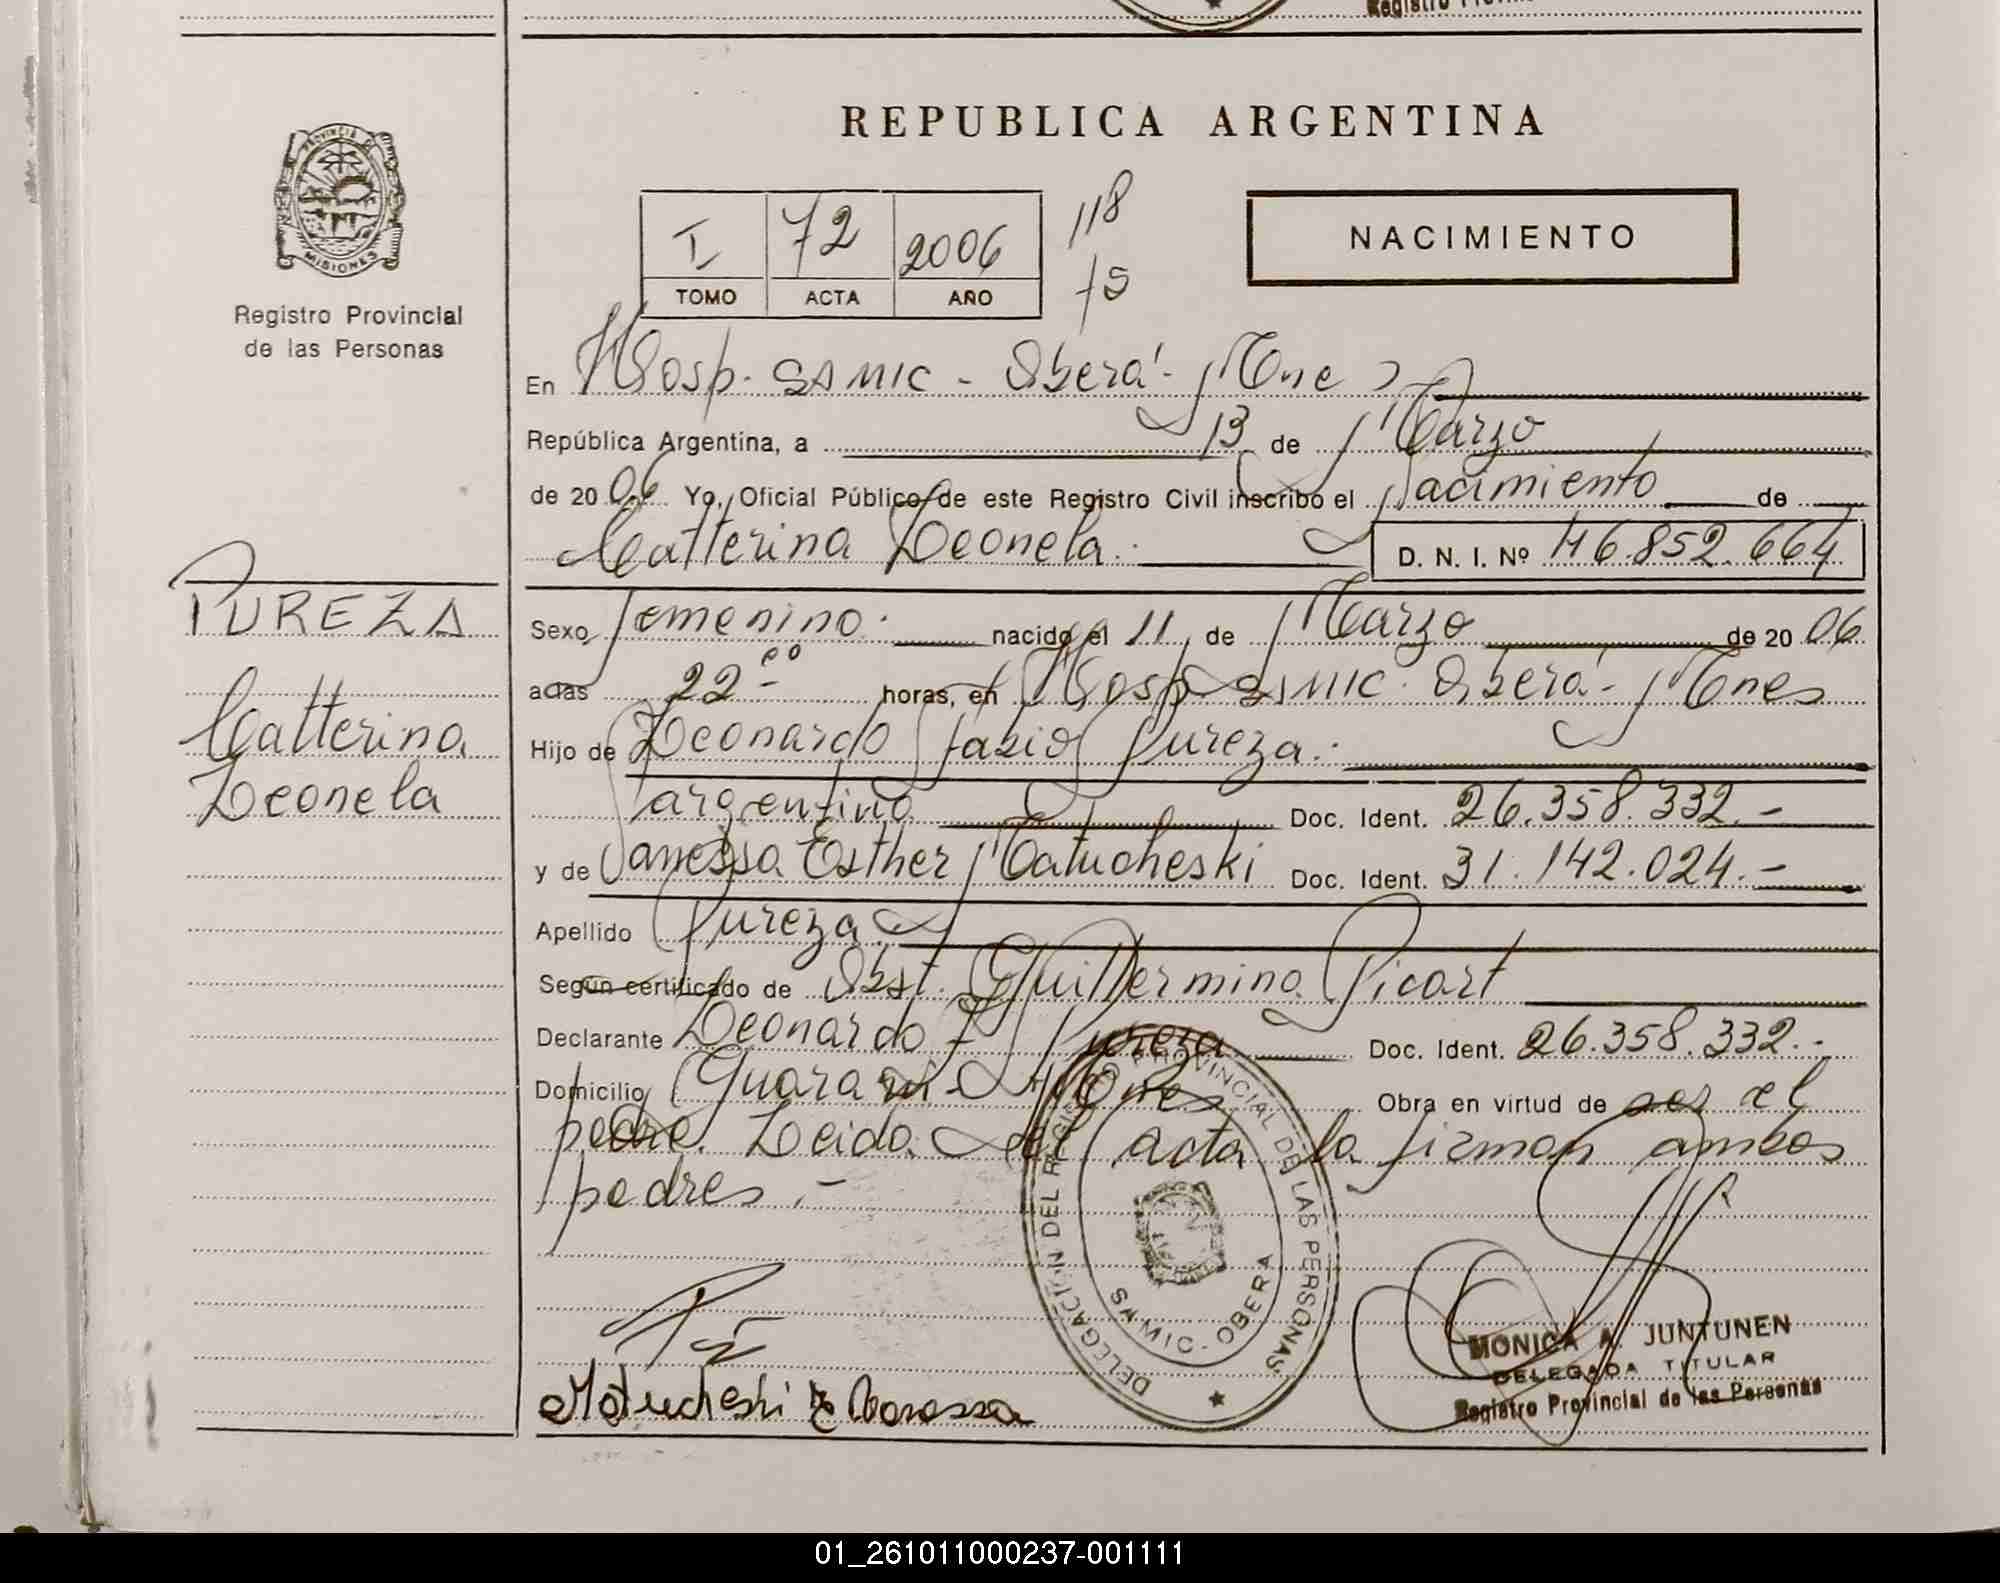 REPUBLICA ARGENTINA
PROVINCIA DE
MISIONES
Registro Provincial
de las Personas
I 72 2006 118
TOMO ACTA AÑO 75
NACIMIENTO
En Hosp. SAMIC - Oberá - Mnes
República Argentina, a 13 de Marzo
de 20 06 Yo, Oficial Público de este Registro Civil inscribo el Nacimiento de
Catterina Leonela. D. N. I. Nº 46.852.664
PUREZA
Catterina
Leonela
Sexo Femenino. nacido el 11 de Marzo de 20 06
a las 22 00 horas, en Hosp SAMIC. Oberá - Mnes
Hijo de Leonardo Fabio Pureza.
argentino Doc. Ident. 26.358.332.-
y de Vanessa Esther Matucheski Doc. Ident. 31.142.024.-
Apellido Pureza
Según certificado de Obst. Guillermina Picart
Declarante Leonardo F. Pureza Doc. Ident. 26.358.332.-
Domicilio Guaraní - Mnes Obra en virtud de ser el
padre. Leida el acta la firman ambos
padres.-
DELEGACIÓN DEL REGISTRO PROVINCIAL DE LAS PERSONAS
SAMIC - OBERA
Matucheski E Vanessa
MONICA A. JUNTUNEN
DELEGADA TITULAR
Registro Provincial de las Personas
01_261011000237-001111